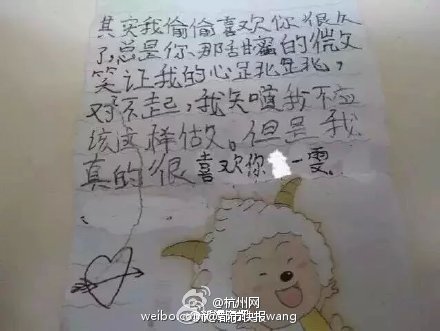 其实我偷偷喜欢你很久
了,总是你那甜蜜的微
笑让我的心跳跳,
对不起,我知道我不应
该这样做。但是我
真的很喜欢你 一雯.
@杭州网